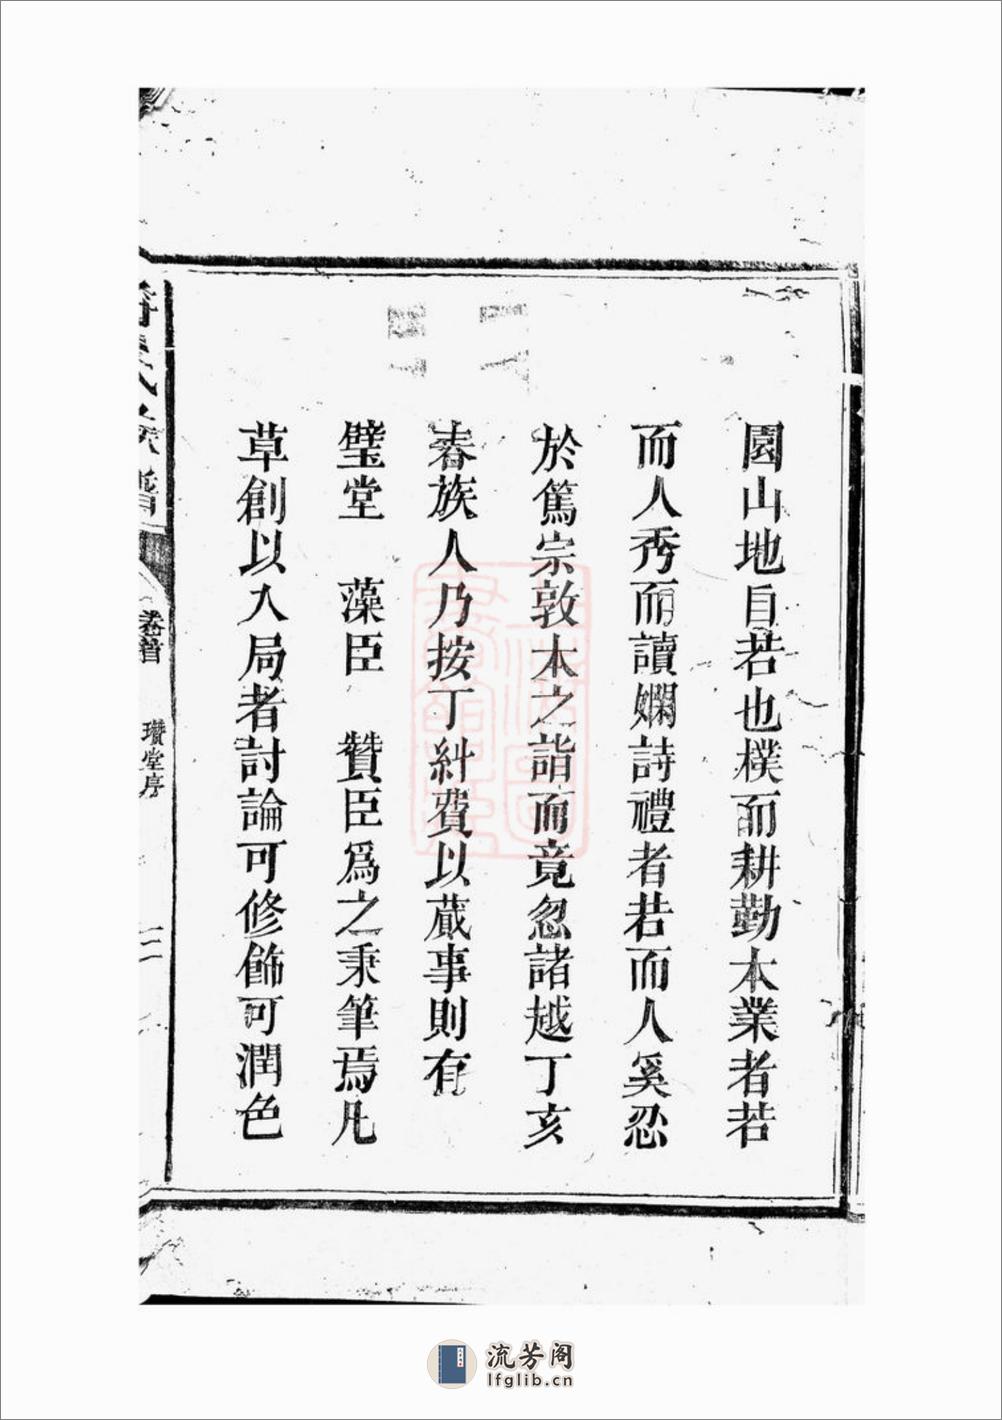 園山地自若也樸而耕勤本業者若
而人秀而讀嫻詩禮者若而人奚忍
於篤宗敦本之誼而竟忽諸越丁亥
春族人乃按丁糾費以蕆事則有
璧堂　藻臣　贊臣爲之秉筆焉凡
草創以入局者討論可修飾可潤色
氏族譜
卷首
瓚堂房
三
流芳阁
lfglib.cn